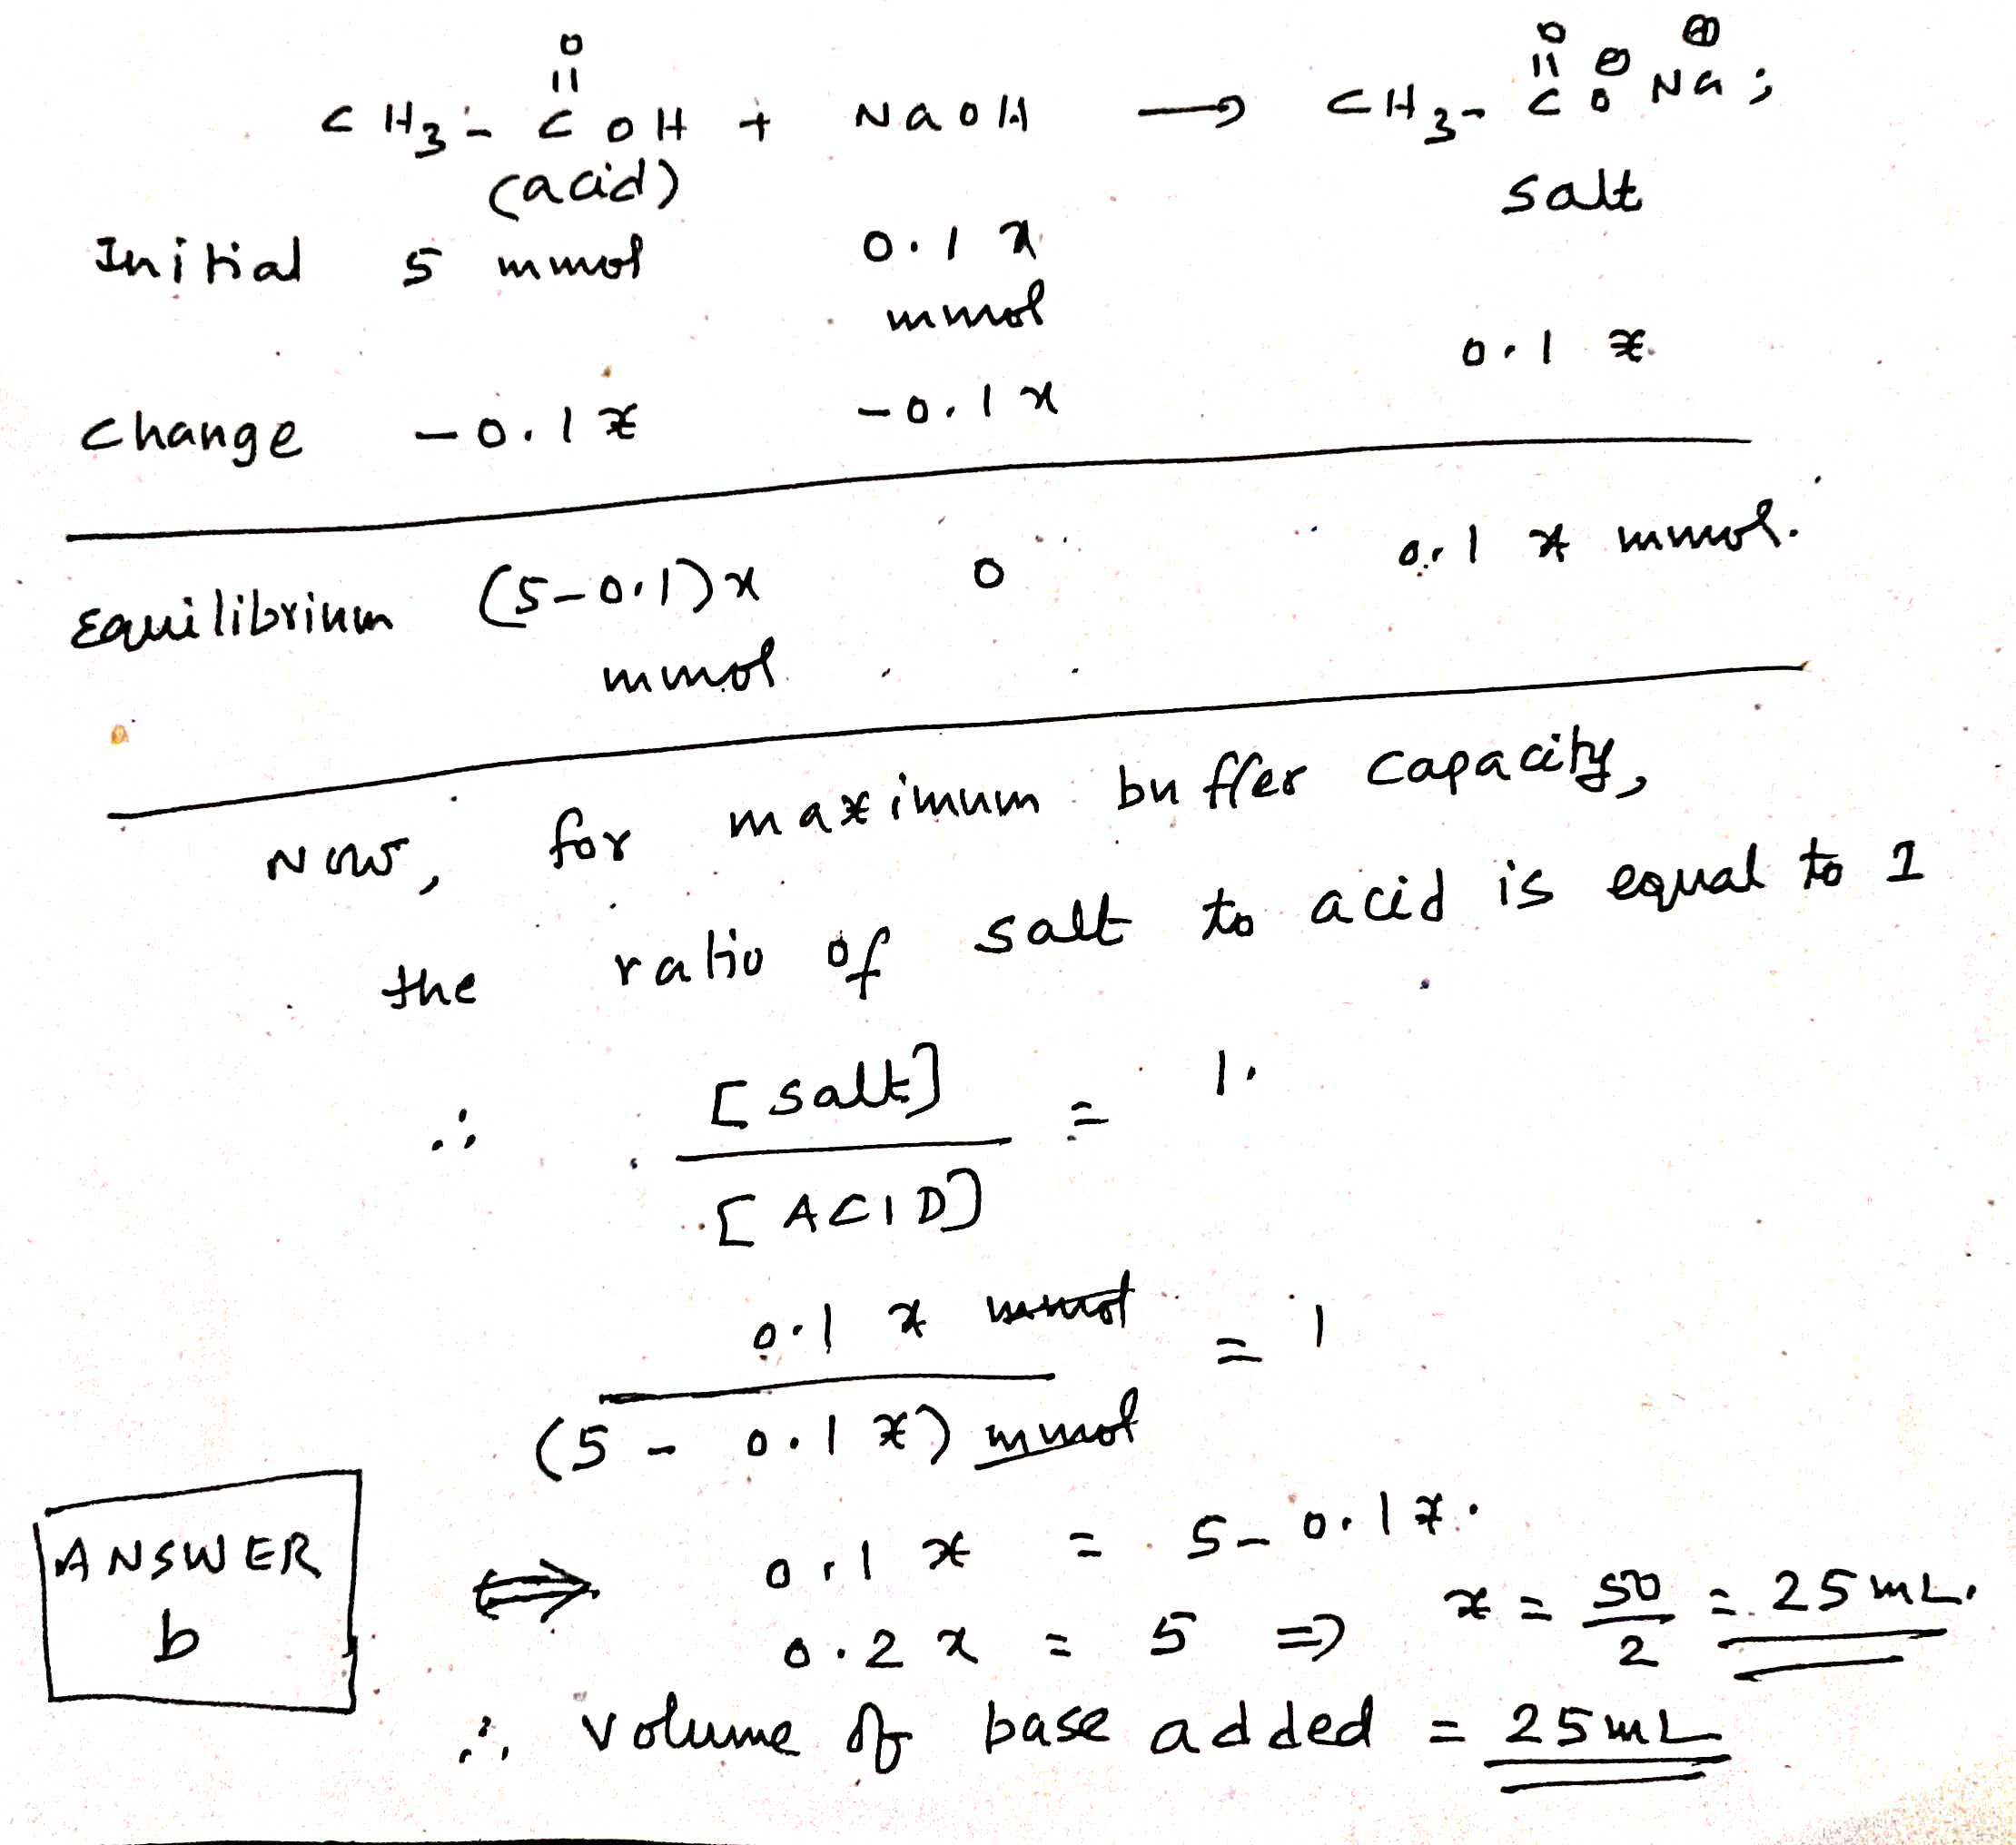 O
||
CH3 - C OH + NaOH → CH3 - C O⊖ Na⊕ ;
(acid)
salt
Initial 5 mmol 0.1 x
mmol
0.1 x
change -0.1x -0.1x
Equilibrium (5-0.1)x 0 0.1 x mmol.
mmol
Now, for maximum buffer capacity,
the ratio of salt to acid is equal to 1
∴ [salt] = 1.
[ACID]
0.1 x mmol = 1
(5 - 0.1 x) mmol
ANSWER
b
⇔ 0.1 x = 5 - 0.1x.
0.2 x = 5 ⇒ x = 50/2 = 25 mL.
∴ volume of base added = 25 mL